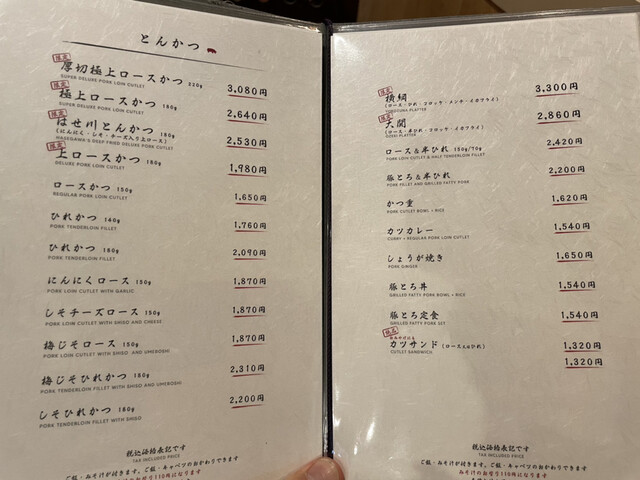 とんかつ
限定
厚切極上ロースかつ 220g 3,080円
SUPER DELUXE PORK LOIN CUTLET
限定
極上ロースかつ 180g 2,640円
SUPER DELUXE PORK LOIN CUTLET
限定
はせ川とんかつ 180g 2,530円
(にんにく・シソ・チーズ入り上ロース)
HASEGAWA'S DEEP FRIED DELUXE PORK CUTLET
限定
上ロースかつ 180g 1,980円
DELUXE PORK LOIN CUTLET
ロースかつ 150g 1,650円
REGULAR PORK LOIN CUTLET
ひれかつ 140g 1,760円
PORK TENDERLOIN FILLET
ひれかつ 180g 2,090円
PORK TENDERLOIN FILLET
にんにくロース 150g 1,870円
PORK LOIN CUTLET WITH GARLIC
しそチーズロース 150g 1,870円
PORK LOIN CUTLET WITH SHISO AND CHEESE
梅じそロース 150g 1,870円
PORK LOIN CUTLET WITH SHISO AND UMEBOSHI
梅じそひれかつ 180g 2,310円
PORK TENDERLOIN FILLET WITH SHISO AND UMEBOSHI
しそひれかつ 180g 2,200円
PORK TENDERLOIN FILLET WITH SHISO
税込価格表記です
TAX INCLUDED PRICE
ご飯・みそ汁が付きます。ご飯・キャベツのおかわりできます
みそ汁のお替り110円になります
限定
横綱 3,300円
(ロース・ひれ・コロッケ・メンチ・イカフライ)
YOKOZUNA PLATTER
限定
大関 2,860円
(ロース・半ひれ・コロッケ・イカフライ)
OZEKI PLATTER
ロース&半ひれ 150g/70g 2,420円
PORK LOIN CUTLET & HALF TENDERLOIN FILLET
豚とろ&半ひれ 2,200円
PORK FILLET AND GRILLED FATTY PORK
かつ重 1,620円
PORK CUTLET BOWL + RICE
カツカレー 1,540円
CURRY + REGULAR PORK LOIN CUTLET
しょうが焼き 1,650円
PORK GINGER
豚とろ丼 1,540円
GRILLED FATTY PORK BOWL + RICE
豚とろ定食 1,540円
GRILLED FATTY PORK SET
カツサンド (ロース又はひれ) 1,320円
CUTLET SANDWICH
1,320円
税込価格表記です
TAX INCLUDED PRICE
ご飯・みそ汁が付きます。ご飯・キャベツのおかわりできます
みそ汁のお替り110円になります